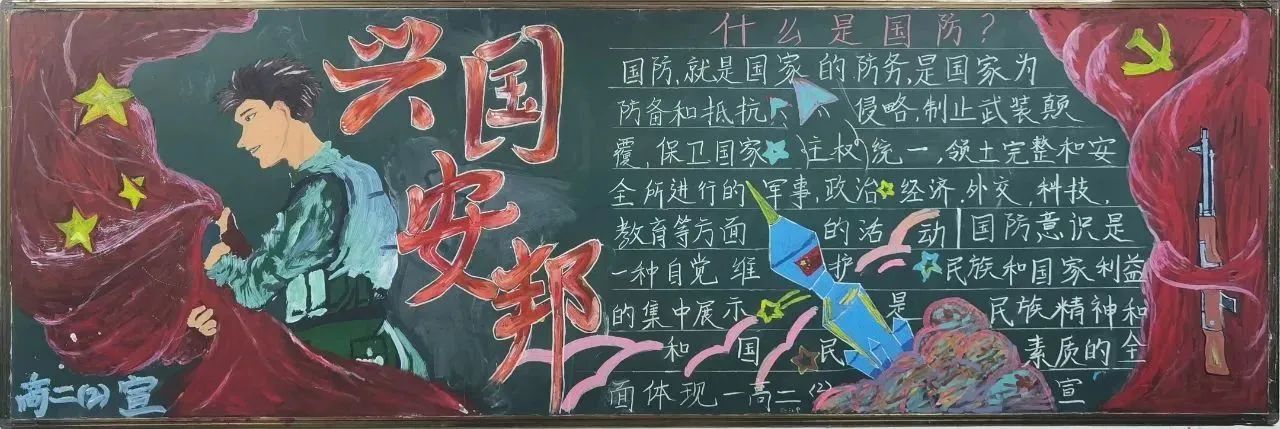 兴国安邦
高二(2)宣
什么是国防?
国防,就是国家的防务,是国家为
防备和抵抗侵略,制止武装颠
覆,保卫国家主权统一,领土完整和安
全所进行的军事,政治经济,外交,科技,
教育等方面的活动国防意识是
一种自觉维护民族和国家利益
的集中展示是民族精神和
和国民素质的全
面体现一高二(2)宣